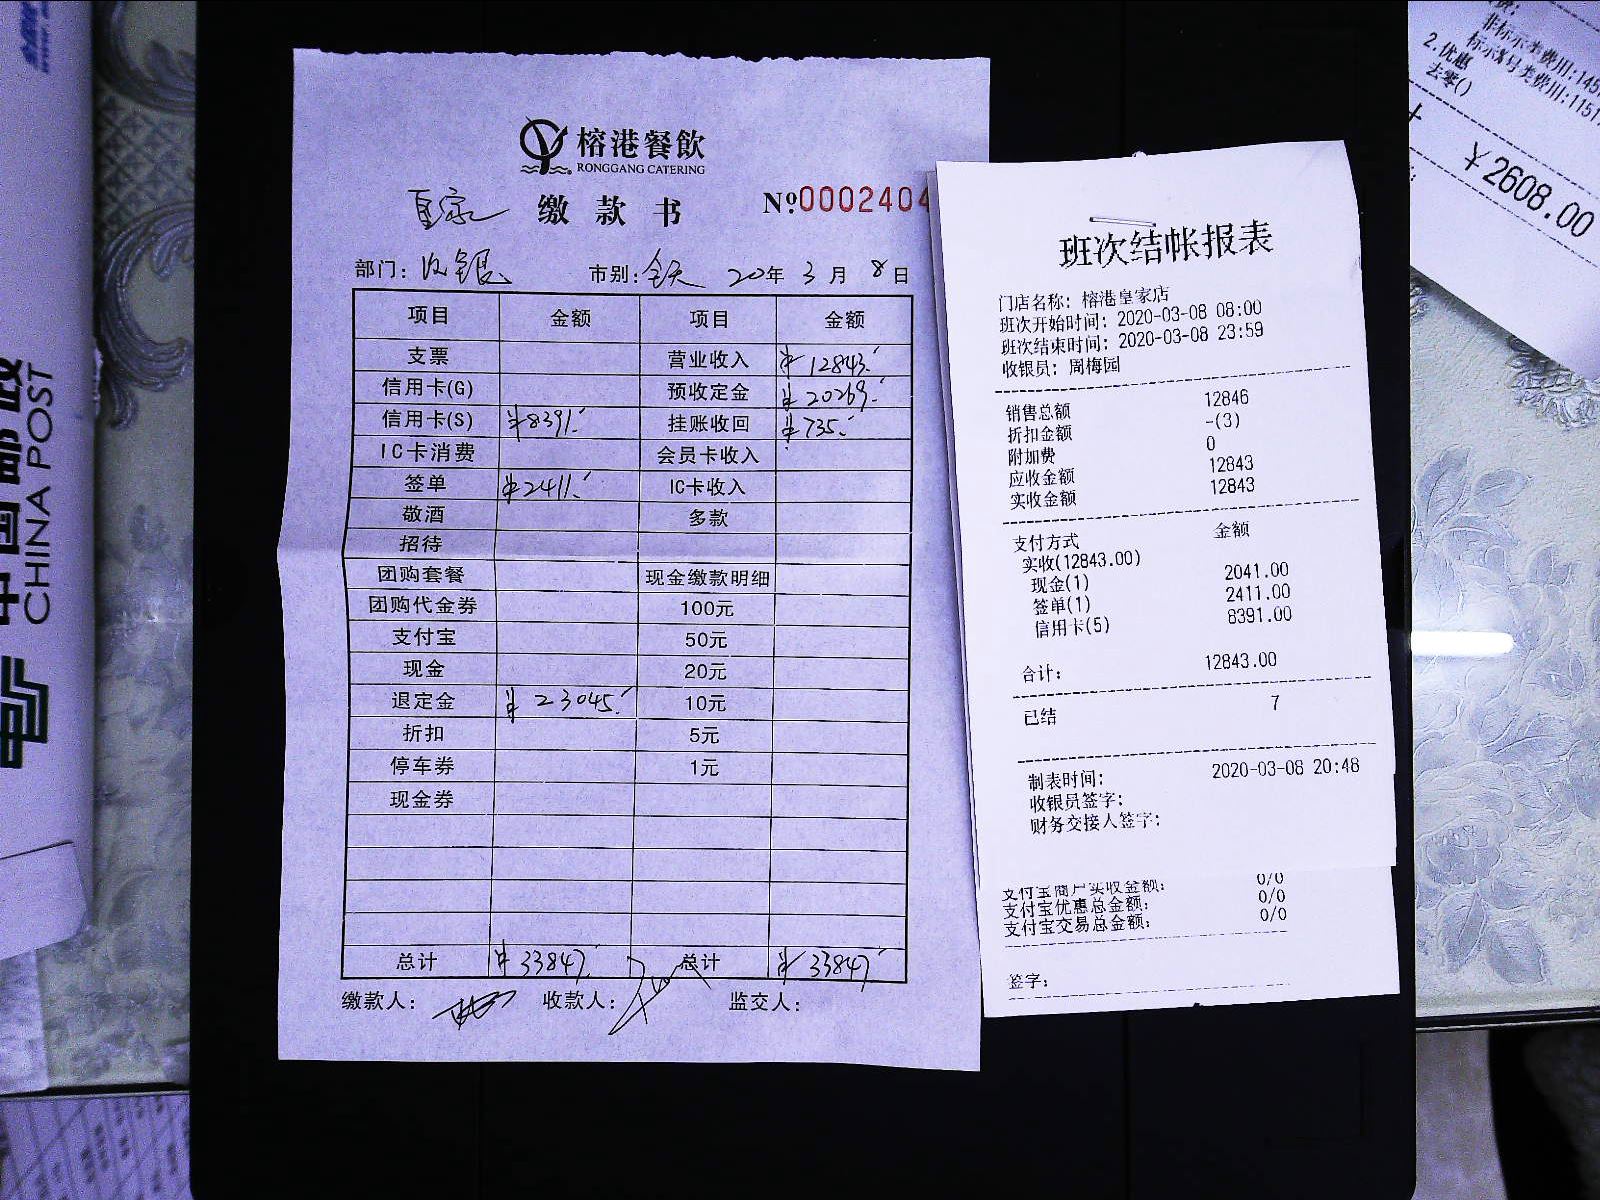 榕港餐飲
RONGGANG CATERING
皇家 缴款书 №0002404
部门: 收银 市别: 全天 20年 3月 8日
项目 金额 项目 金额
支票 营业收入 ¥12843.
信用卡(G) 预收定金 ¥20269.
信用卡(S) ¥8391. 挂账收回 ¥735.
IC卡消费 会员卡收入
签单 ¥2411. IC卡收入
敬酒 多款
招待
团购套餐 现金缴款明细
团购代金券 100元
支付宝 50元
现金 20元
退定金 ¥23045. 10元
折扣 5元
停车券 1元
现金券
总计 ¥33847. 总计 ¥33847
缴款人: 收款人: 监交人:
班次结帐报表
门店名称: 榕港皇家店
班次开始时间: 2020-03-08 08:00
班次结束时间: 2020-03-08 23:59
收银员: 周梅园
销售总额 12846
折扣金额 -(3)
附加费 0
应收金额 12843
实收金额 12843
支付方式 金额
实收(12843.00)
现金(1) 2041.00
签单(1) 2411.00
信用卡(5) 8391.00
合计: 12843.00
已结 7
制表时间: 2020-03-08 20:48
收银员签字:
财务交接人签字:
支付宝商户实收金额: 0/0
支付宝优惠总金额: 0/0
支付宝交易总金额: 0/0
签字:
非标示类费用:145
标示%号类费用:1151
2.优惠
去零()
¥2608.00
中国邮政
CHINA POST